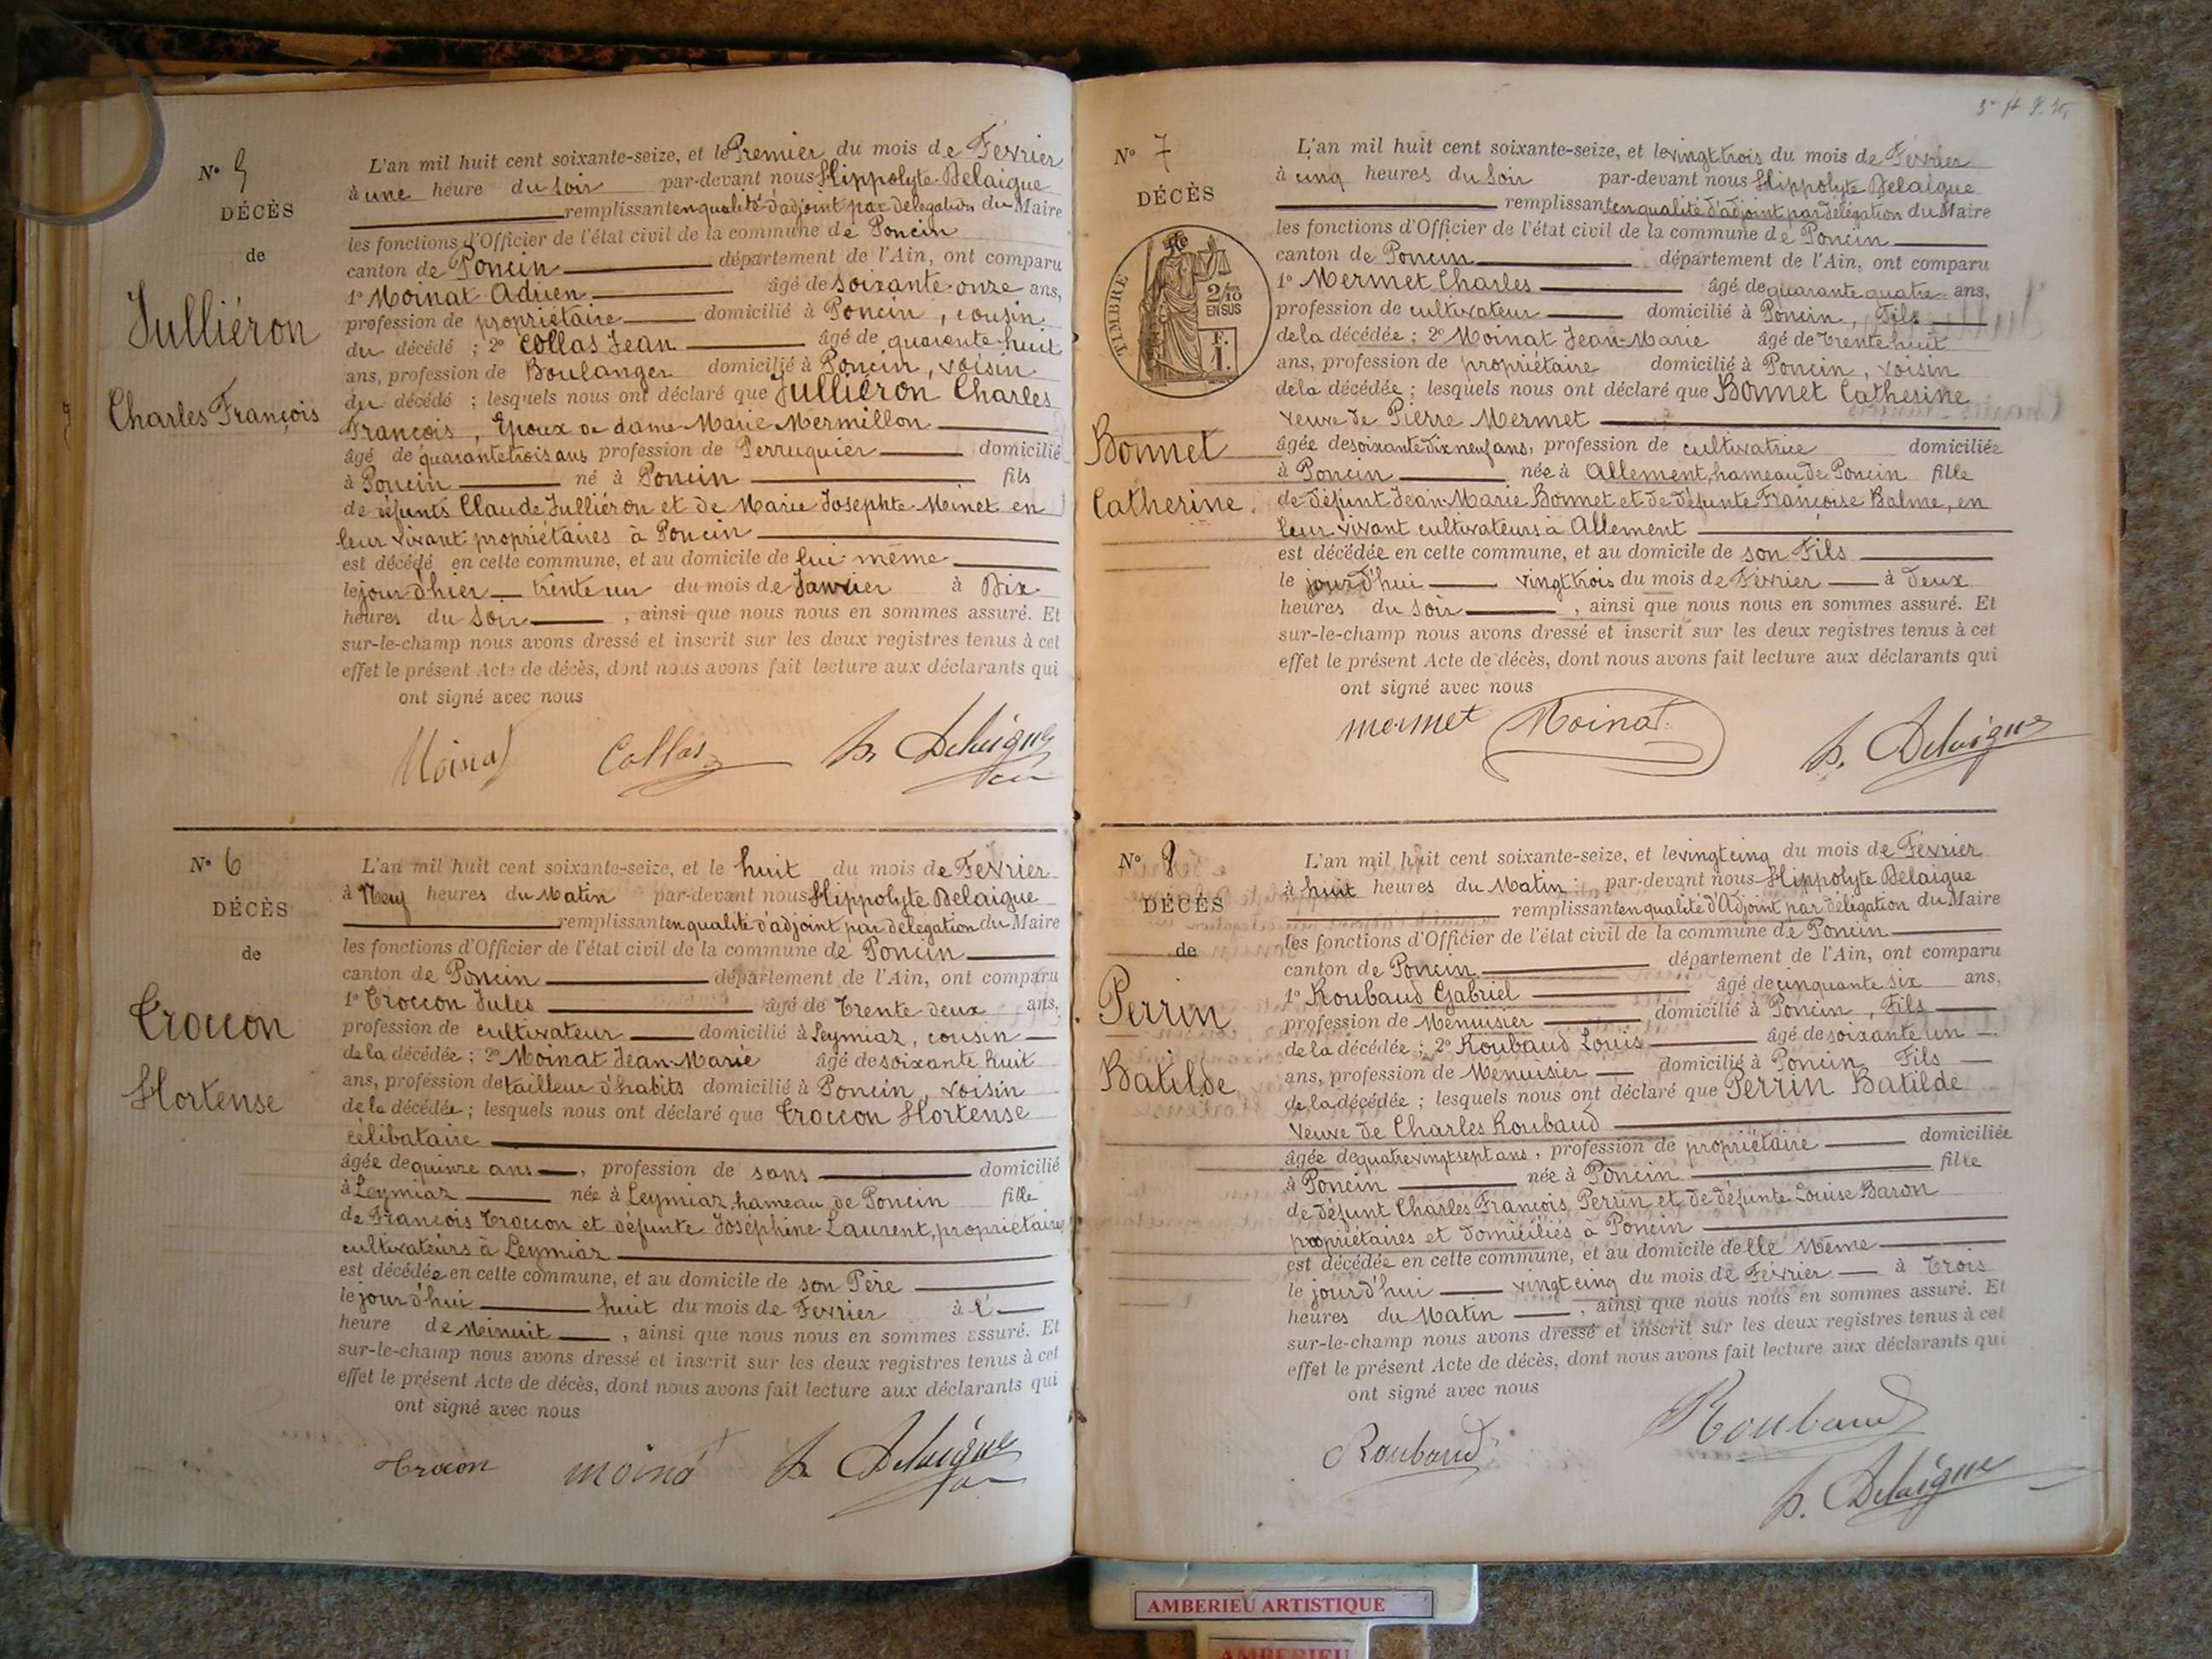 N° 5
DÉCÈS
de
Julliéron
Charles François
L'an mil huit cent soixante-seize, et le Premier du mois de Février
à une heure du Soir par-devant nous Hippolyte Delaigue
remplissant en qualité d'adjoint par délégation du Maire
les fonctions d'Officier de l'état civil de la commune de Poncin
canton de Poncin département de l'Ain, ont comparu
1° Moinat Adrien âgé de soixante-onze ans,
profession de propriétaire domicilié à Poncin, cousin
du décédé ; 2° Collas Jean âgé de quarante-huit
ans, profession de Boulanger domicilié à Poncin, voisin
du décédé ; lesquels nous ont déclaré que Julliéron Charles
François, Epoux de dame Marie Mermillon
âgé de quarante trois ans profession de Perruquier domicilié
à Poncin né à Poncin fils
de défunts Claude Julliéron et de Marie Josephte Meinet en
leur vivant propriétaires à Poncin
est décédé en cette commune, et au domicile de lui même
le jour d'hier trente un du mois de Janvier à Dix
heures du Soir, ainsi que nous nous en sommes assuré. Et
sur-le-champ nous avons dressé et inscrit sur les deux registres tenus à cet
effet le présent Acte de décès, dont nous avons fait lecture aux déclarants qui
ont signé avec nous
Moinat Collas h. Delaigue
N° 6
DÉCÈS
de
Croccon
Hortense
L'an mil huit cent soixante-seize, et le huit du mois de Février
à Neuf heures du Matin par-devant nous Hippolyte Delaigue
remplissant en qualité d'adjoint par délégation du Maire
les fonctions d'Officier de l'état civil de la commune de Poncin
canton de Poncin département de l'Ain, ont comparu
1° Croccon Jules âgé de Trente deux ans,
profession de cultivateur domicilié à Leymiaz, cousin
de la décédée ; 2° Moinat Jean-Marie âgé de soixante huit
ans, profession de tailleur d'habits domicilié à Poncin, voisin
de la décédée ; lesquels nous ont déclaré que Croccon Hortense
célibataire
âgée de quinze ans, profession de sans domicilié
à Leymiaz née à Leymiaz, hameau de Poncin fille
de François Croccon et défunte Joséphine Laurent, propriétaires
cultivateurs à Leymiaz
est décédée en cette commune, et au domicile de son Père
le jour d'hui huit du mois de Février à l'
heure de Meinuit, ainsi que nous nous en sommes assuré. Et
sur-le-champ nous avons dressé et inscrit sur les deux registres tenus à cet
effet le présent Acte de décès, dont nous avons fait lecture aux déclarants qui
ont signé avec nous
Crocon moina h. Delaigue
N° 7
DÉCÈS
TIMBRE
2/10
EN SUS
F.
1.
Bonnet
Catherine
L'an mil huit cent soixante-seize, et le vingt trois du mois de Février
à cinq heures du Soir par-devant nous Hippolyte Delaigue
remplissant en qualité d'adjoint par délégation du Maire
les fonctions d'Officier de l'état civil de la commune de Poncin
canton de Poncin département de l'Ain, ont comparu
1° Mermet Charles âgé de quarante quatre ans,
profession de cultivateur domicilié à Poncin, Fils
de la décédée ; 2° Moinat Jean-Marie âgé de Trente huit
ans, profession de propriétaire domicilié à Poncin, voisin
de la décédée ; lesquels nous ont déclaré que Bonnet Catherine
veuve de Pierre Mermet
âgée de soixante dix neuf ans, profession de cultivatrice domiciliée
à Poncin née à Allement, hameau de Poncin fille
de défunt Jean-Marie Bonnet et de défunte Françoise Balme, en
leur vivant cultivateurs à Allement
est décédée en cette commune, et au domicile de son Fils
le jour d'hui vingt trois du mois de Février à deux
heures du Soir, ainsi que nous nous en sommes assuré. Et
sur-le-champ nous avons dressé et inscrit sur les deux registres tenus à cet
effet le présent Acte de décès, dont nous avons fait lecture aux déclarants qui
ont signé avec nous
mermet Moinat h. Delaigue
N° 8
DÉCÈS
de
Perrin
Batilde
L'an mil huit cent soixante-seize, et le vingt cinq du mois de Février
à huit heures du Matin par-devant nous Hippolyte Delaigue
remplissant en qualité d'Adjoint par délégation du Maire
les fonctions d'Officier de l'état civil de la commune de Poncin
canton de Poncin département de l'Ain, ont comparu
1° Roubaud Gabriel âgé de cinquante six ans,
profession de Menuisier domicilié à Poncin, Fils
de la décédée ; 2° Roubaud Louis âgé de soixante un
ans, profession de Menuisier domicilié à Poncin Fils
de la décédée ; lesquels nous ont déclaré que Perrin Batilde
veuve de Charles Roubaud
âgée de quatre vingt sept ans, profession de propriétaire domiciliée
à Poncin née à Poncin fille
de défunt Charles François Perrin et de défunte Louise Baron
propriétaires et domiciliés à Poncin
est décédée en cette commune, et au domicile d'elle Même
le jour d'hui vingt cinq du mois de Février à Trois
heures du Matin, ainsi que nous nous en sommes assuré. Et
sur-le-champ nous avons dressé et inscrit sur les deux registres tenus à cet
effet le présent Acte de décès, dont nous avons fait lecture aux déclarants qui
ont signé avec nous
Roubaud Roubaud
h. Delaigue
AMBERIEU ARTISTIQUE
AMBERIEU